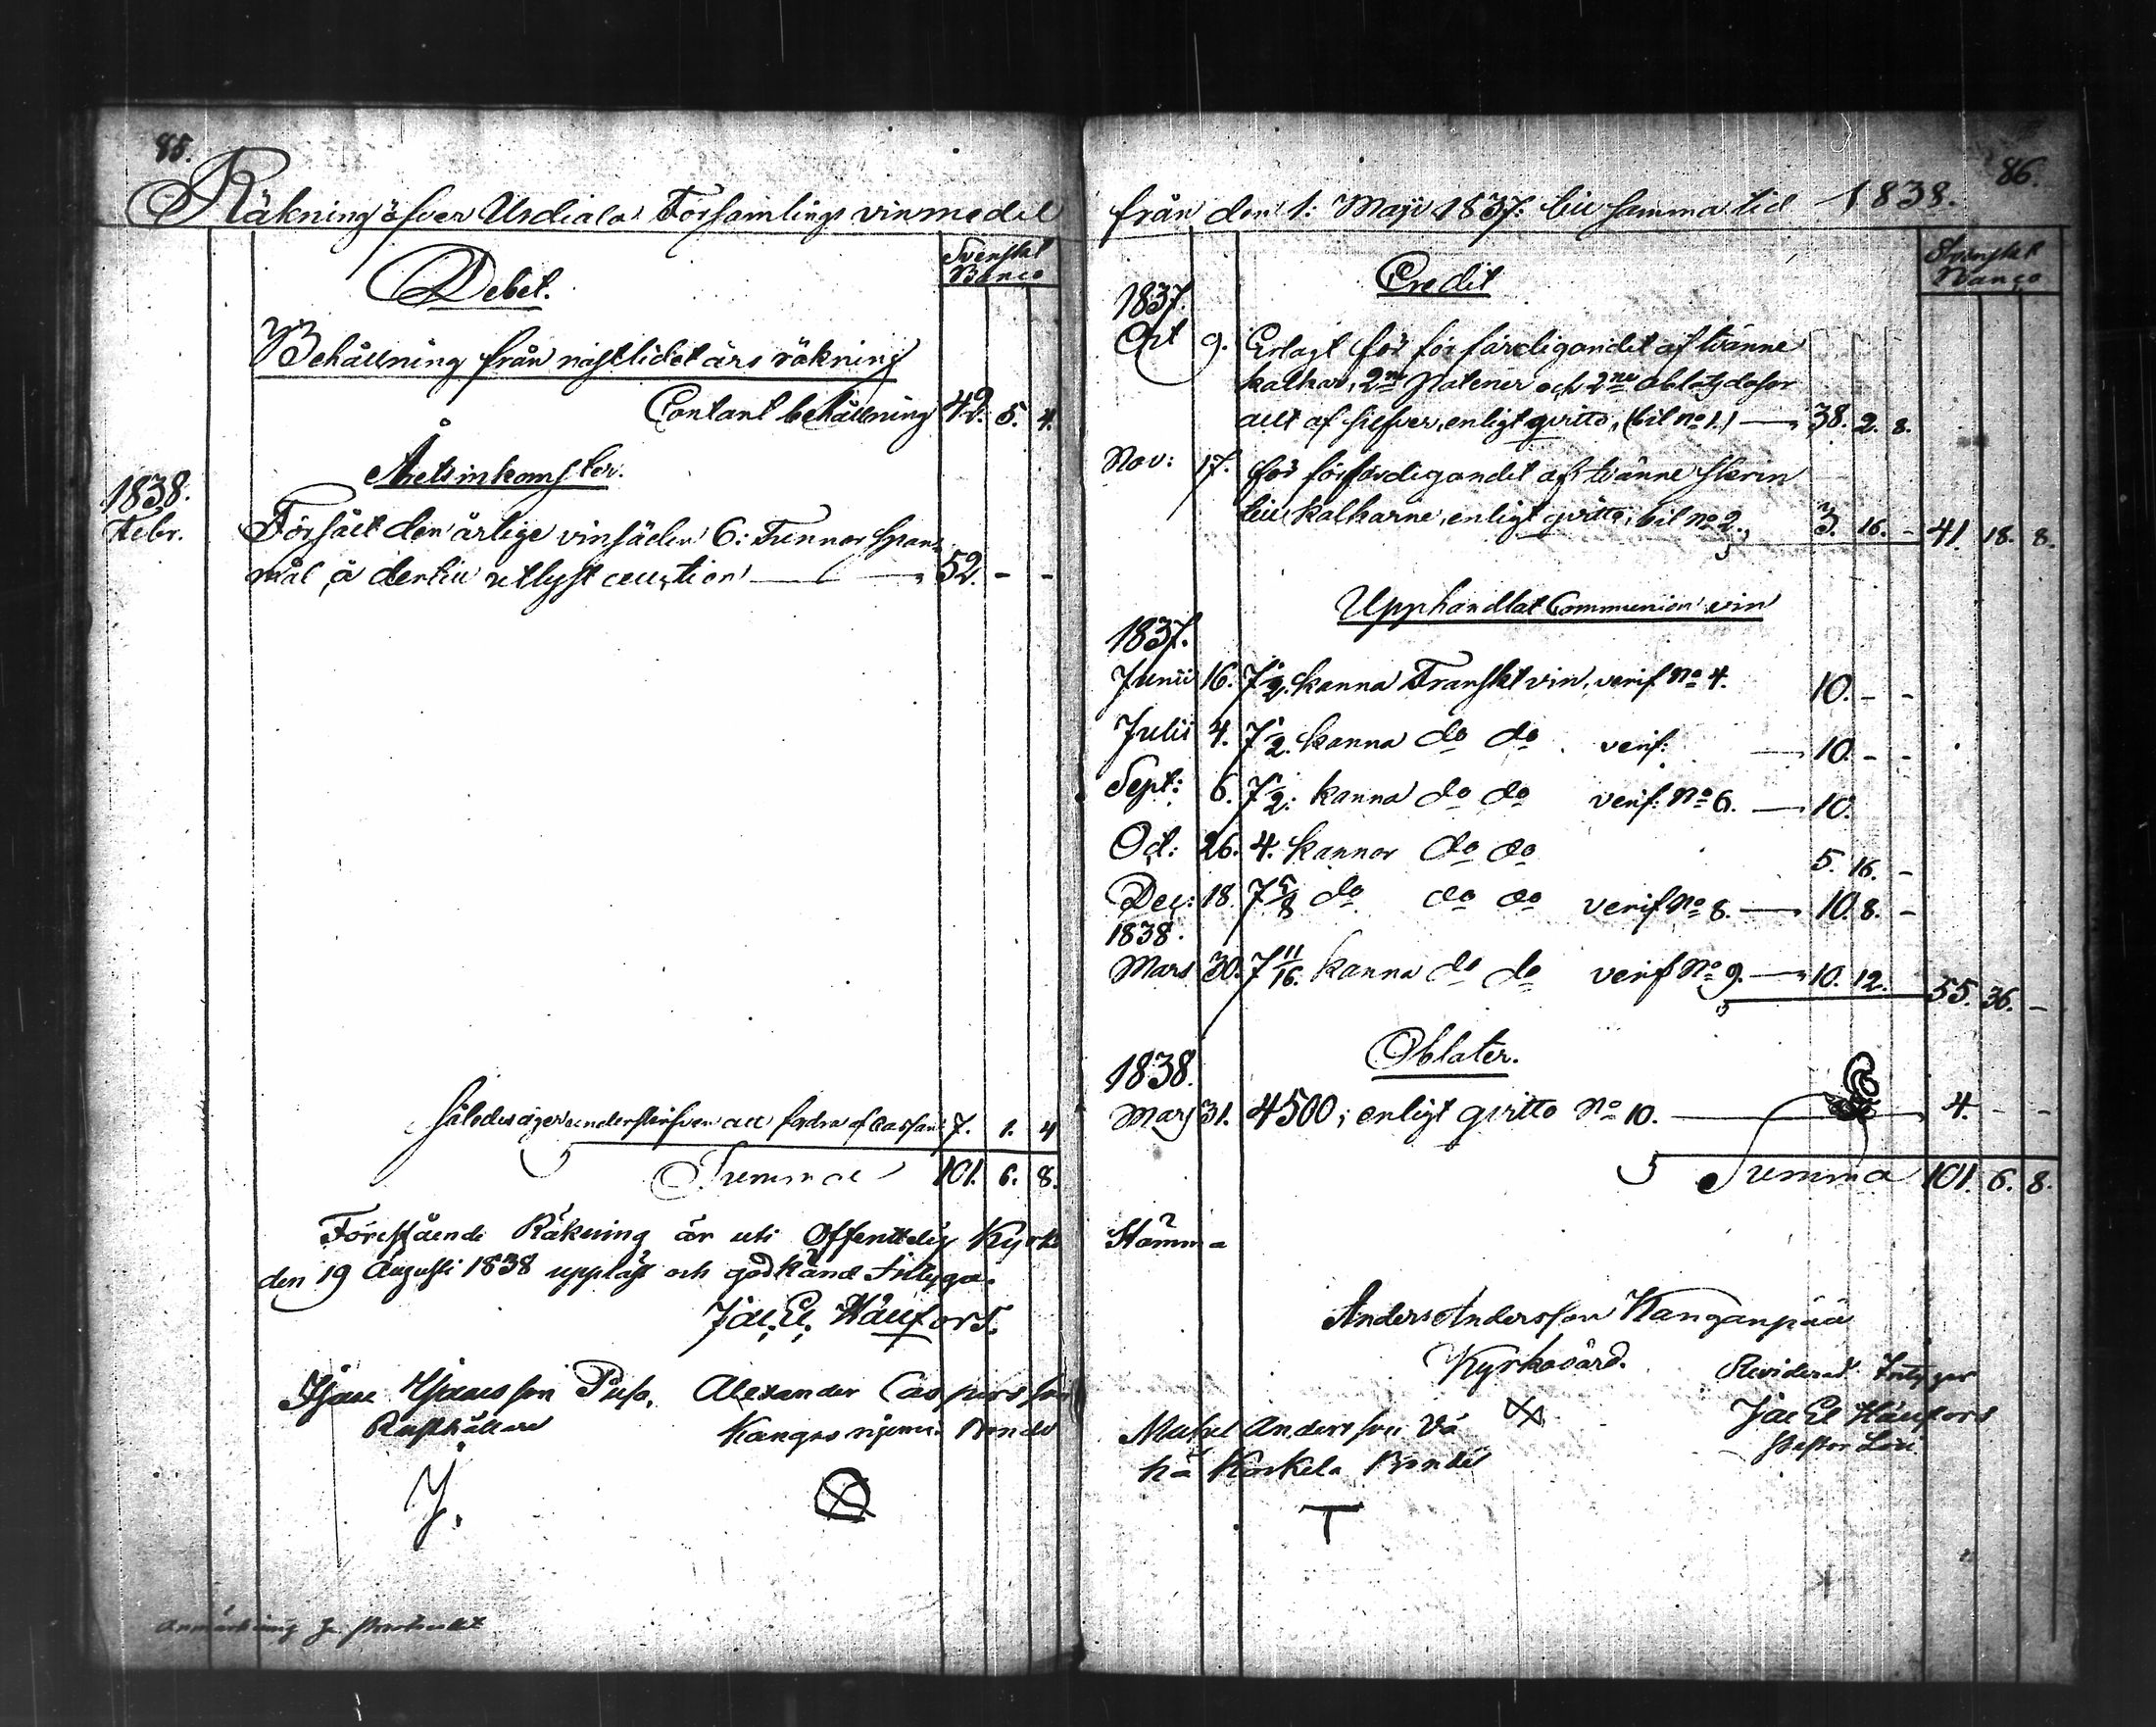 85.
Räkning öfver Urdiala Församlings vinmedel
Svenskt
Banco
Debet.
Behållning från nästlidet års räkning
Contant behållning 42. 5. 4.
Åretsinkomster.
1838.
Febr. Försält den årlige vinsäden 6: Tunnor Span-
mål å dertill utlyst auction — 52. - -
Således äger underskrifven att fordra af Cassan 7. 1. 4
Summa 101. 6. 8.
Förestående Räkning är uti Offentelig Kyrko
den 19 Augusti 1838 uppläst och godkänd Intyga.
Jac. El. Hällfors.
Isac Isacsson Puso, Alexander Caspersson
Rusthållare Kangas niemi Bonde
J.
Anmärkning
86.
från den 1: Maji 1837. till samma tid 1838.
Svenskt
Banco
Credit
1837.
Oct 9. Erlagt för förfärdigandet af tvänne
kalkar, 2ne Patener och 2ne oblatsdosor
allt af silfver, enligt qvitto, (bil No 1.) — 38. 2. 8.
Nov: 17. för förfärdigandet af tvänne skrin
till kalkarne, enligt qvitto, bil No 2. 3. 16. - 41. 18. 8.
Upphandlat Communion vin
1837.
Junii 16. 7 1/2. kanna Franskt vin, verif No 4. 10. - -
Julii 4. 7 1/2. kanna do do verif: — 10. - -
Sept: 6. 7 1/2: kanna do do verif: No 6. — 10.
Oct: 26. 4. kannor do do 5. 16. -
Dec: 18. 7 5/8 do do do verif No 8. — 10. 8. -
1838.
Mars 30. 7 11/16. kanna do do verif No 9. — 10. 12. 55. 36. -
Oblater.
1838.
Mars 31. 4500; enligt qvitto No 10. — 4. - -
Summa 101. 6. 8.
Stämma
Anders Andersson Kanganpää
Kyrkovärd.
Reviderat Intygar
Jac El Hällfors
Pastor Loci
Mickel Andersson Vä
hä Koskela Bonde